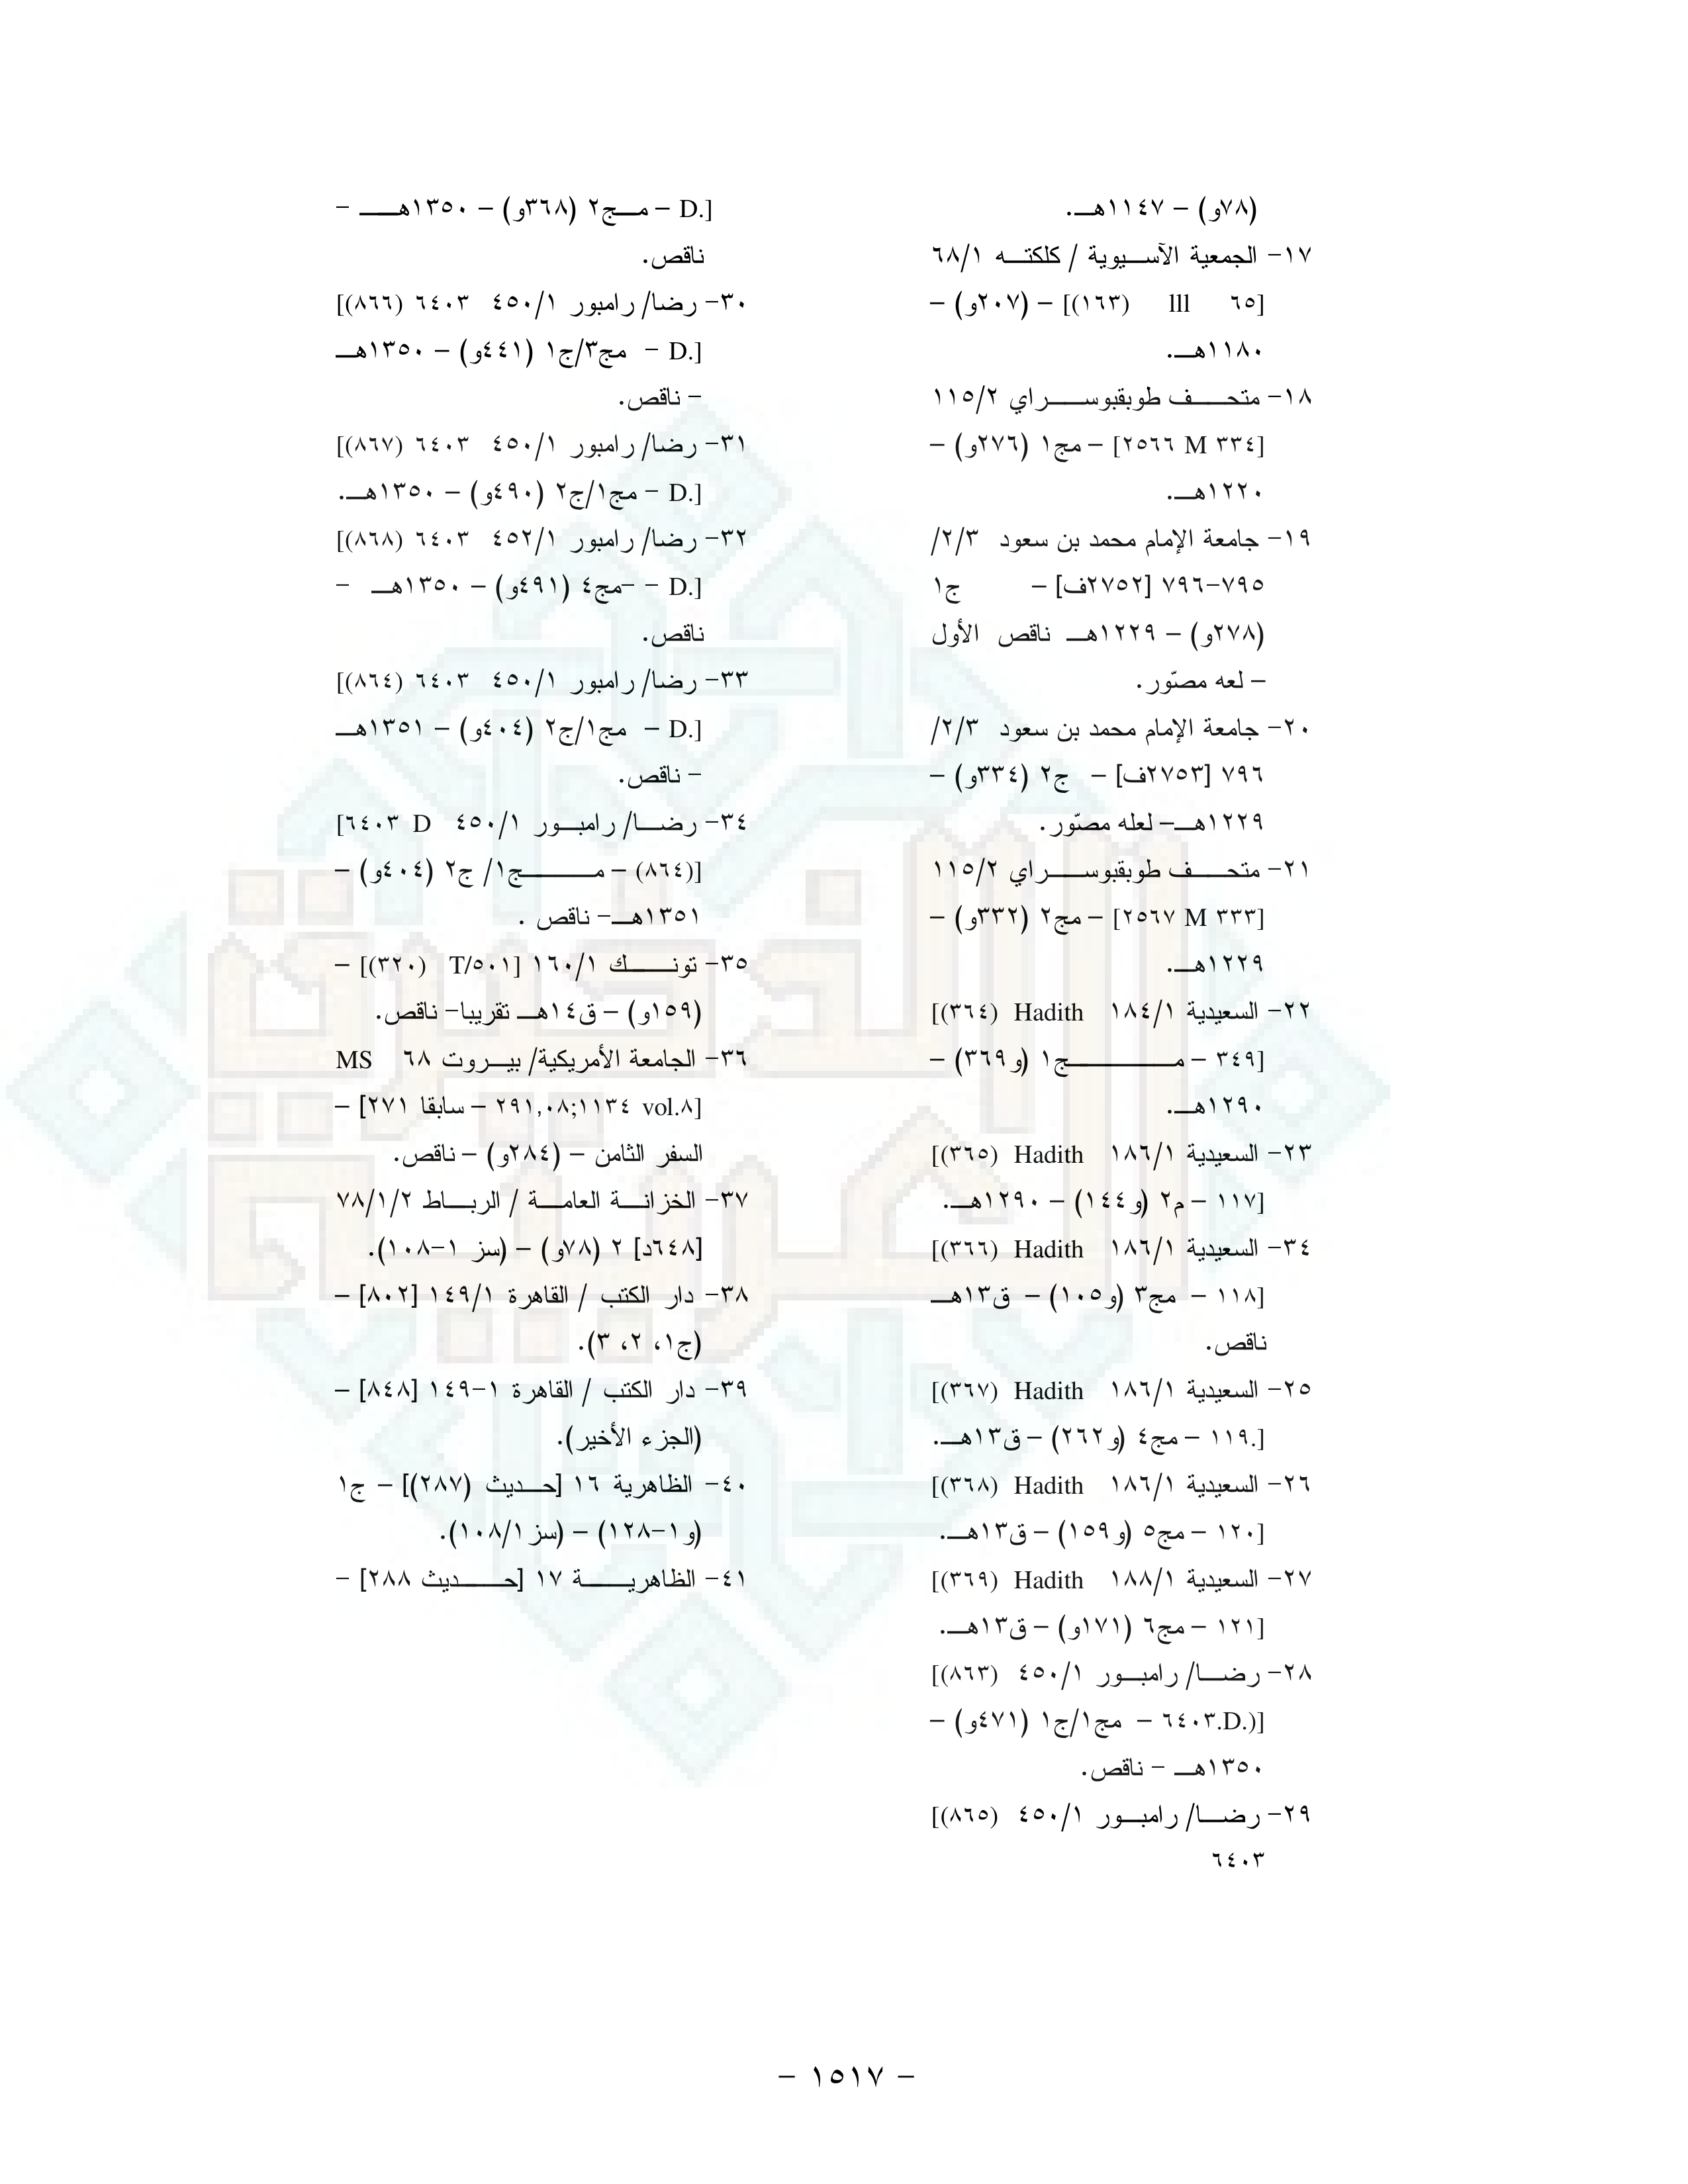 (٧٨و) – ١١٤٧هـ.
١٧– الجمعية الآسيوية / كلكته ٦٨/١
[٦٥ lll (١٦٣)] – (٢٠٧و) –
١١٨٠هـ.
١٨– متحف طوبقبوسراي ١١٥/٢
[٢٥٦٦ M ٣٣٤] – مج١ (٢٧٦و) –
١٢٢٠هـ.
١٩– جامعة الإمام محمد بن سعود ٢/٣/
٧٩٥–٧٩٦ [٢٧٥٢ف] – ج١
(٢٧٨و) – ١٢٢٩هـ ناقص الأول
– لعه مصّور.
٢٠– جامعة الإمام محمد بن سعود ٢/٣/
٧٩٦ [٢٧٥٣ف] – ج٢ (٣٣٤و) –
١٢٢٩هـ– لعله مصّور.
٢١– متحف طوبقبوسراي ١١٥/٢
[٢٥٦٧ M ٣٣٣] – مج٢ (٣٣٢و) –
١٢٢٩هـ.
٢٢– السعيدية ١٨٤/١ Hadith (٣٦٤)]
[٣٤٩ – مج١ (و٣٦٩) –
١٢٩٠هـ.
٢٣– السعيدية ١٨٦/١ Hadith (٣٦٥)]
[١١٧ – م٢ (و١٤٤) – ١٢٩٠هـ.
٣٤– السعيدية ١٨٦/١ Hadith (٣٦٦)]
[١١٨ – مج٣ (و١٠٥) – ق١٣هـ
ناقص.
٢٥– السعيدية ١٨٦/١ Hadith (٣٦٧)]
[.١١٩ – مج٤ (و٢٦٢) – ق١٣هـ.
٢٦– السعيدية ١٨٦/١ Hadith (٣٦٨)]
[١٢٠ – مج٥ (و١٥٩) – ق١٣هـ.
٢٧– السعيدية ١٨٨/١ Hadith (٣٦٩)]
[١٢١ – مج٦ (١٧١و) – ق١٣هـ.
٢٨– رضا/ رامبور ٤٥٠/١ (٨٦٣)]
[(.D.٦٤٠٣ – مج١/ج١ (٤٧١و) –
١٣٥٠هـ – ناقص.
٢٩– رضا/ رامبور ٤٥٠/١ (٨٦٥)]
٦٤٠٣
[.D – مج٢ (٣٦٨و) – ١٣٥٠هـ –
ناقص.
٣٠– رضا/ رامبور ٤٥٠/١ ٦٤٠٣ (٨٦٦)]
[.D – مج٣/ج١ (٤٤١و) – ١٣٥٠هـ
– ناقص.
٣١– رضا/ رامبور ٤٥٠/١ ٦٤٠٣ (٨٦٧)]
[.D – مج١/ج٢ (٤٩٠و) – ١٣٥٠هـ.
٣٢– رضا/ رامبور ٤٥٢/١ ٦٤٠٣ (٨٦٨)]
[.D – –مج٤ (٤٩١و) – ١٣٥٠هـ –
ناقص.
٣٣– رضا/ رامبور ٤٥٠/١ ٦٤٠٣ (٨٦٤)]
[.D – مج١/ج٢ (٤٠٤و) – ١٣٥١هـ
– ناقص.
٣٤– رضا/ رامبور ٤٥٠/١ D ٦٤٠٣]
[(٨٦٤) – مج١/ ج٢ (٤٠٤و) –
١٣٥١هـ– ناقص .
٣٥– تونك ١٦٠/١ [T/٥٠١ (٣٢٠)] –
(١٥٩و) – ق١٤هـ تقريبا– ناقص.
٣٦– الجامعة الأمريكية/ بيروت ٦٨ MS
[vol.٨ ٢٩١,٠٨;١١٣٤ – سابقا ٢٧١] –
السفر الثامن – (٢٨٤و) – ناقص.
٣٧– الخزانة العامة / الرباط ٧٨/١/٢
[٦٤٨د] ٢ (٧٨و) – (سز ١–١٠٨).
٣٨– دار الكتب / القاهرة ١٤٩/١ [٨٠٢] –
(ج١، ٢، ٣).
٣٩– دار الكتب / القاهرة ١–١٤٩ [٨٤٨] –
(الجزء الأخير).
٤٠– الظاهرية ١٦ [حديث (٢٨٧)] – ج١
(و١–١٢٨) – (سز ١٠٨/١).
٤١– الظاهرية ١٧ [حديث ٢٨٨] –
– ١٥١٧ –